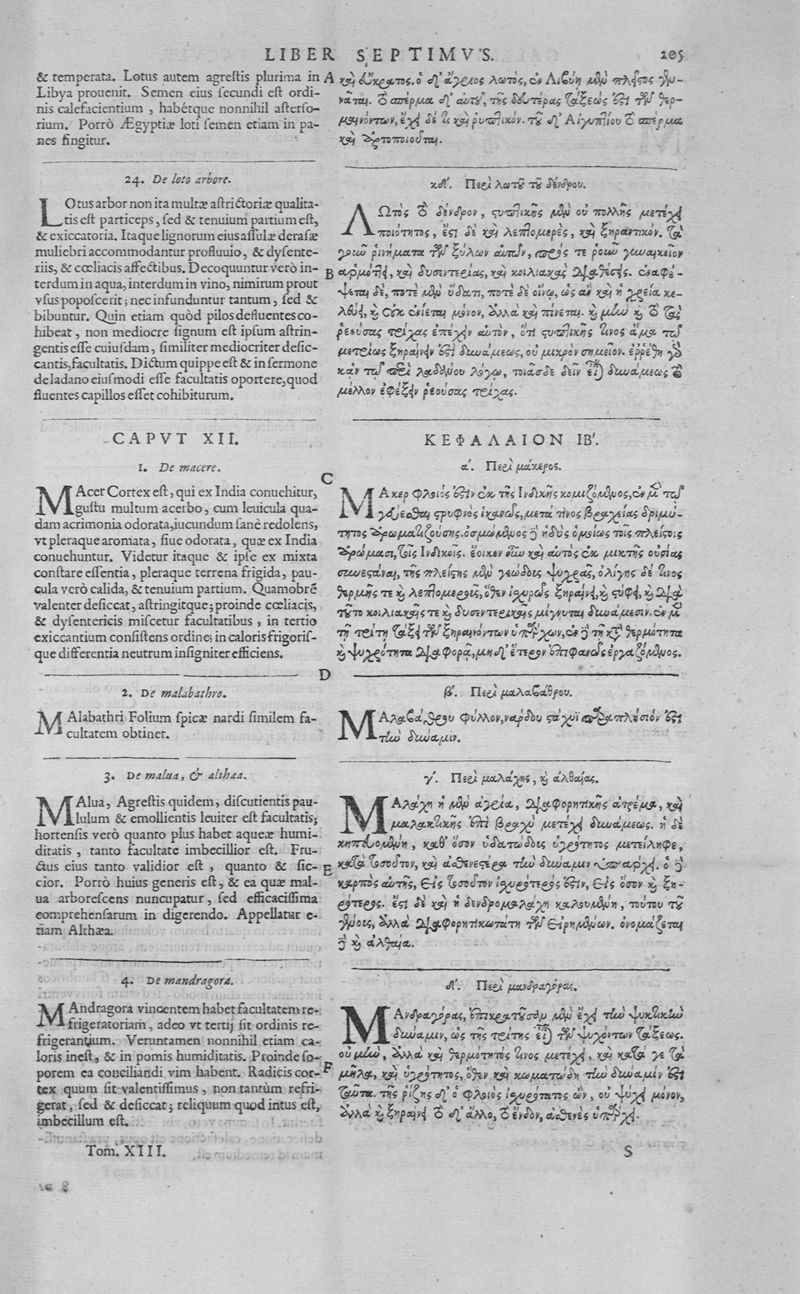 LIBER SEPTIMVS. 205
& temperata. Lotus autem agrestis plurima in
Libya prouenit. Semen eius secundi est ordi-
nis calefacientium, habétque nonnihil astersо-
rium. Porrò Ægyptiæ loti semen etiam in pa-
nes fingitur.
24. De loto arbore.
LOtus arbor non ita multæ astrictoriæ qualita-
tis est particeps, sed & tenuium partium est,
& exiccatoria. Itaque lignorum eius assulæ derasæ
muliebri accommodantur profluuio, & dysente-
riis, & cœliacis affectibus. Decoquuntur verò in-
terdum in aqua, interdum in vino, nimirum prout
vsus poposcerit; nec infunduntur tantum, sed &
bibuntur. Quin etiam quòd pilos defluentes co-
hibeat, non mediocre signum est ipsum astrin-
gentis esse cuiusdam, similiter mediocriter desic-
cantis, facultatis. Dictum quippe est & in sermone
de ladano eiusmodi esse facultatis oportere, quod
fluentes capillos esset cohibiturum.
CAPVT XII.
1. De macere.
MAcer Cortex est, qui ex India conuehitur,
gustu multum acerbo, cum leuicula qua-
dam acrimonia odorata, iucundum sanè redolens,
vt pleraque aromata, siue odorata, quæ ex India
conuehuntur. Videtur itaque & ipse ex mixta
constare essentia, pleraque terrena frigida, pau-
cula verò calida, & tenuium partium. Quamobrē
valenter desiccat, astringitque; proinde cœliacis,
& dysentericis miscetur facultatibus, in tertio
exiccantium consistens ordine; in caloris frigoris-
que differentia neutrum insigniter efficiens.
2. De malabathro.
MAlabathri Folium spicæ nardi similem fa-
cultatem obtinet.
3. De malua, & althæa.
MAlua, Agrestis quidem, discutientis pau-
lulum & emollientis leuiter est facultatis;
hortensis verò quanto plus habet aqueæ humi-
ditatis, tanto facultate imbecillior est. Fru-
ctus eius tanto validior est, quanto & sic-
cior. Porrò huius generis est, & ea quæ mal-
ua arborescens nuncupatur, sed efficacissima
comprehensarum in digerendo. Appellatur e-
tiam Althæa.
4. De mandragora.
MAndragora vincentem habet facultatem re-
frigeratoriam, adeo vt tertij sit ordinis re-
frigerantium. Veruntamen nonnihil etiam ca-
loris inest, & in pomis humiditatis. Proinde so-
porem ea conciliandi vim habent. Radicis cor-
tex quum sit valentissimus, non tantùm refri-
gerat, sed & desiccat; reliquum quod intus est,
imbecillum est.
Tom. XIII.
A
B
C
D
E
F
καὶ εὔκρατος. ὁ δ' ἄγριος λωτὸς, ἐν Λιβύῃ μὲν πλεῖστος γεν-
νᾶται. τὸ σπέρμα δ' αὐτοῦ, τῆς δευτέρας τάξεώς ἐστι τῶν θερ-
μαινόντων, ἔχει δέ τι καὶ ῥυπτικόν. τοῦ δ' Αἰγυπτίου τὸ σπέρμα
καὶ ἀρτοποιοῦται.
κδ'. Περὶ λωτοῦ τοῦ δένδρου.
ΛΩτὸς τὸ δένδρον, στυπτικῆς μὲν οὐ πολλῆς μετέχει
ποιότητος, ἔστι δὲ καὶ λεπτομερὲς, καὶ ξηραντικόν. τὰ
γοῦν ῥινήματα τῶν ξύλων αὐτοῦ, πρός τε ῥοῦν γυναικεῖον
ἁρμόττει, καὶ δυσεντερίας, καὶ κοιλιακὰς διαθέσεις. ἐναφέ-
ψεται δὲ, ποτὲ μὲν ὕδατι, ποτὲ δὲ οἴνῳ, ὡς ἂν καὶ ἡ χρεία κε-
λεύῃ, καὶ οὐκ ἐνίεται μόνον, ἀλλὰ καὶ πίνεται. καὶ μὴν καὶ τὸ τὰς
ῥεούσας τρίχας ἐπέχειν αὐτὸν, ὅτι στυπτικῆς τινος ἅμα τῷ
μετρίως ξηραίνειν ἐστὶ δυνάμεως, οὐ μικρὸν σημεῖον. ἐρρέθη γὰρ
κἀν τῷ περὶ λαδάνου λόγῳ, τοιᾶσδε δεῖν εἶναι δυνάμεως τὸ
μέλλον ἐφέξειν ῥεούσας τρίχας.
ΚΕΦΑΛΑΙΟΝ ΙΒ'.
α'. Περὶ μάκερος.
ΜΑκερ φλοιός ἐστιν ἐκ τῆς Ἰνδικῆς κομιζόμενος, ἐν μὲν τῷ
γεύεσθαι στρυφνὸς ἱκανῶς, μετά τινος βραχείας δριμύ-
τητος ἀρωματιζούσης. ὀσμώμενος δὲ ἡδὺς ὁμοίως τοῖς πλείστοις
ἀρώμασι, τοῖς Ἰνδικοῖς. ἔοικεν οὖν καὶ αὐτὸς ἐκ μικτῆς οὐσίας
συνεστάναι, τῆς πλείστης μὲν γεώδους ψυχρᾶς, ὀλίγης δέ τινος
θερμῆς τε καὶ λεπτομεροῦς, ὅθεν ἰσχυρῶς ξηραίνει, καὶ στύφει, καὶ διὰ
τοῦτο κοιλιακαῖς τε καὶ δυσεντερικαῖς μίγνυται δυνάμεσιν. ἐν μὲν
τῇ τρίτῃ τάξει τῶν ξηραινόντων ὑπάρχων, ἐν δὲ τῇ κατὰ θερμότητα
καὶ ψυχρότητα διαφορᾷ, μηδ' ἕτερον ἐπιφανῶς ἐργαζόμενος.
β'. Περὶ μαλαβάθρου.
ΜΑλαβάθρου φύλλον, νάρδου στάχυϊ παραπλήσιόν ἐστι
τὴν δύναμιν.
γ'. Περὶ μαλάχης, καὶ ἀλθαίας.
ΜΑλάχη ἡ μὲν ἀγρία, διαφορητικῆς ἀτρέμα, καὶ
μαλακτικῆς ἐπὶ βραχὺ μετέχει δυνάμεως. ἡ δὲ
κηπευομένη, καθ' ὅσον ὑδατώδους ὑγρότητος μετείληφε,
κατὰ τοσοῦτον, καὶ ἀσθενεστέρα τὴν δύναμιν ὑπάρχει. ὁ δὲ
καρπὸς αὐτῆς, εἰς τοσοῦτον ἰσχυρότερός ἐστιν, εἰς ὅσον καὶ ξη-
ρότερος. ἔστι δὲ καὶ ἡ δενδρομαλάχη καλουμένη, τούτου τοῦ
γένους, ἀλλὰ διαφορητικωτάτη τῶν εἰρημένων. ὀνομάζεται
δὲ καὶ ἀλθαία.
δ'. Περὶ μανδραγόρας.
ΜΑνδραγόρας, ἐπικρατοῦσαν μὲν ἔχει τὴν ψυκτικὴν
δύναμιν, ὡς τῆς τρίτης εἶναι τῶν ψυχόντων τάξεως.
οὐ μὴν, ἀλλὰ καὶ θερμότητός τινος μετέχει, καὶ κατά γε τὰ
μῆλα, καὶ ὑγρότητος, ὅθεν καὶ κωματώδη τὴν δύναμιν ἐστὶ
ταῦτα. τῆς ῥίζης δ' ὁ φλοιὸς ἰσχυρότατος ὢν, οὐ ψύχει μόνον,
ἀλλὰ καὶ ξηραίνει. τὸ δ' ἄλλο, τὸ ἔνδον, ἀσθενὲς ὑπάρχει.
S